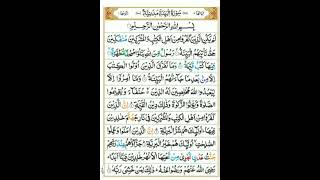 سُوْرَةُ الْبَيِّنَةِ مَدَنِيَّةٌ
بِسْمِ اللّٰهِ الرَّحْمٰنِ الرَّحِيْمِ
لَمْ يَكُنِ الَّذِيْنَ كَفَرُوْا مِنْ اَهْلِ الْكِتٰبِ وَالْمُشْرِكِيْنَ مُنْفَكِّيْنَ
حَتّٰى تَاْتِيَهُمُ الْبَيِّنَةُ رَسُوْلٌ مِّنَ اللّٰهِ يَتْلُوْا صُحُفًا مُّطَهَّرَةً
فِيْهَا كُتُبٌ قَيِّمَةٌ وَمَا تَفَرَّقَ الَّذِيْنَ اُوْتُوا الْكِتٰبَ
اِلَّا مِنْۢ بَعْدِ مَا جَآءَتْهُمُ الْبَيِّنَةُ وَمَآ اُمِرُوْٓا اِلَّا
لِيَعْبُدُوا اللّٰهَ مُخْلِصِيْنَ لَهُ الدِّيْنَ حُنَفَآءَ وَيُقِيْمُوا
الصَّلٰوةَ وَيُؤْتُوا الزَّكٰوةَ وَذٰلِكَ دِيْنُ الْقَيِّمَةِ اِنَّ الَّذِيْنَ
كَفَرُوْا مِنْ اَهْلِ الْكِتٰبِ وَالْمُشْرِكِيْنَ فِيْ نَارِ جَهَنَّمَ خٰلِدِيْنَ
فِيْهَا اُولٰٓئِكَ هُمْ شَرُّ الْبَرِيَّةِ اِنَّ الَّذِيْنَ اٰمَنُوْا وَعَمِلُوا
الصّٰلِحٰتِ اُولٰٓئِكَ هُمْ خَيْرُ الْبَرِيَّةِ جَزَآؤُهُمْ عِنْدَ رَبِّهِمْ
جَنّٰتُ عَدْنٍ تَجْرِيْ مِنْ تَحْتِهَا الْاَنْهٰرُ خٰلِدِيْنَ فِيْهَآ اَبَدًا
رَضِيَ اللّٰهُ عَنْهُمْ وَرَضُوْا عَنْهُ ذٰلِكَ لِمَنْ خَشِيَ رَبَّهٗ